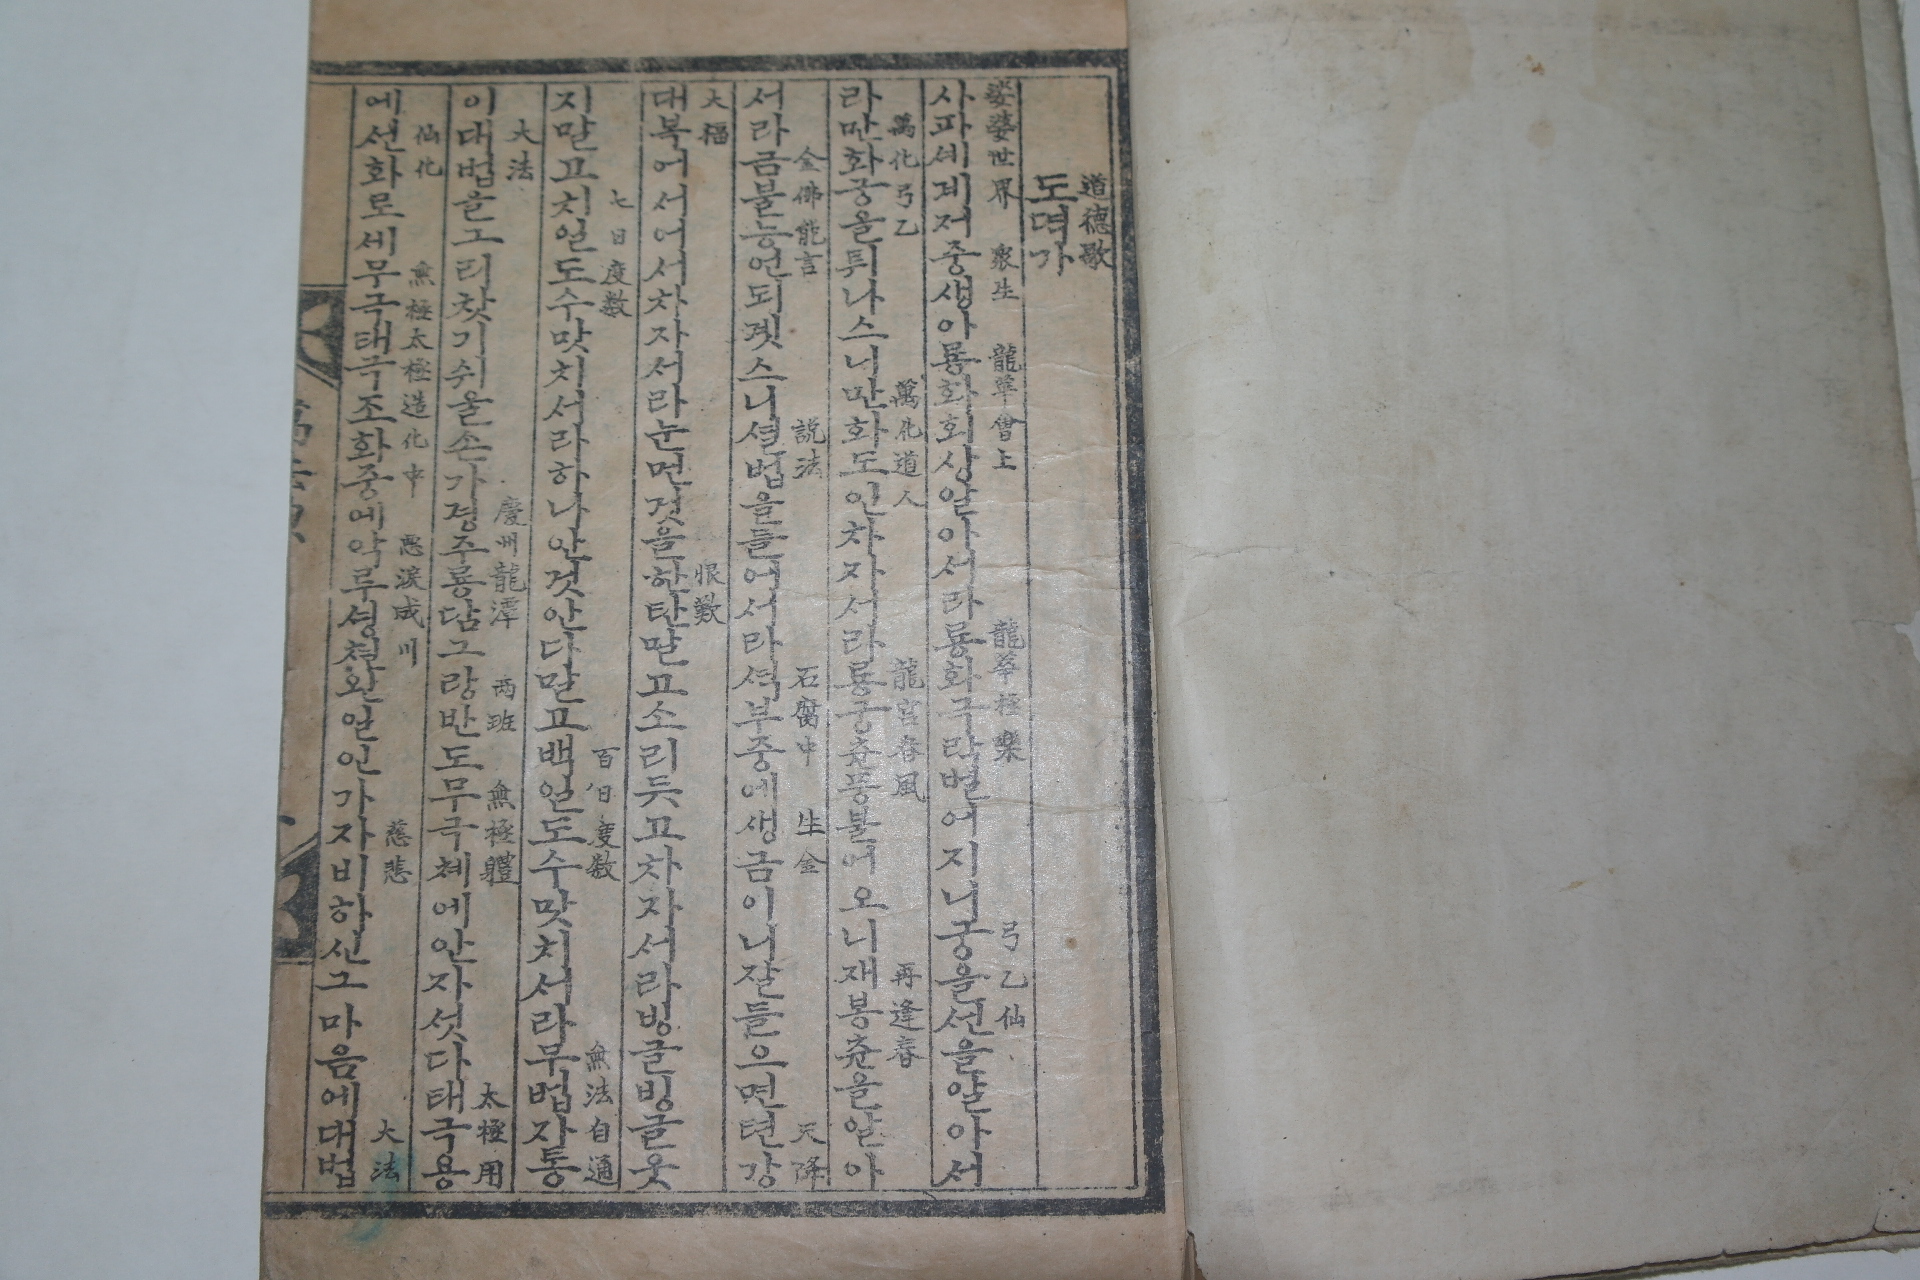 道德歌
도덕가
娑婆世界 衆生 龍華會上 龍華極樂 弓乙仙
사파세계저중생아룡화회상알아서라룡화극락벌어지니궁을선을알아서
萬化弓乙 萬化道人 龍宮春風 再逢春
라만화궁을튀나스니만화도인차자서라룡궁츈풍불어오니재봉츈을알아
金佛能言 説法 石腐中 生金 天降
서라금불능언되겟스니셜법을들어서라셕부중에생금이니잘들으면텬강
大福 恨歎
대복어서어서차자서라눈먼것을한탄말고소리듯고차자서라빙글빙글웃
七日度數 百日度数 無法自通
지말고치일도수맛치서라하나안것안다말고백일도수맛치서라무법자통
大法 慶州龍潭 两班 無極體 太極用
이대법을그리찻기쉬울손가경주룡담그량반도무극체에안자섯다태극용
仙化 無極太極造化中 悪淚成川 慈悲 大法
에선화로세무극태극조화중에악루셩쳔왼일인가자비하신그마음에대법